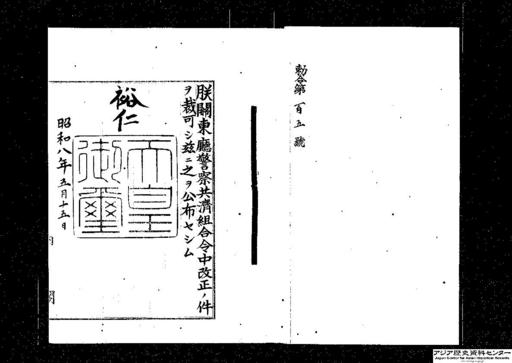 勅令第百五號
朕關東廳警察共濟組合令中改正ノ件
ヲ裁可シ玆ニ之ヲ公布セシム
裕仁
天皇
御璽
昭和八年五月十五日
アジア歴史資料センター
Japan Center for Asian Historical Records